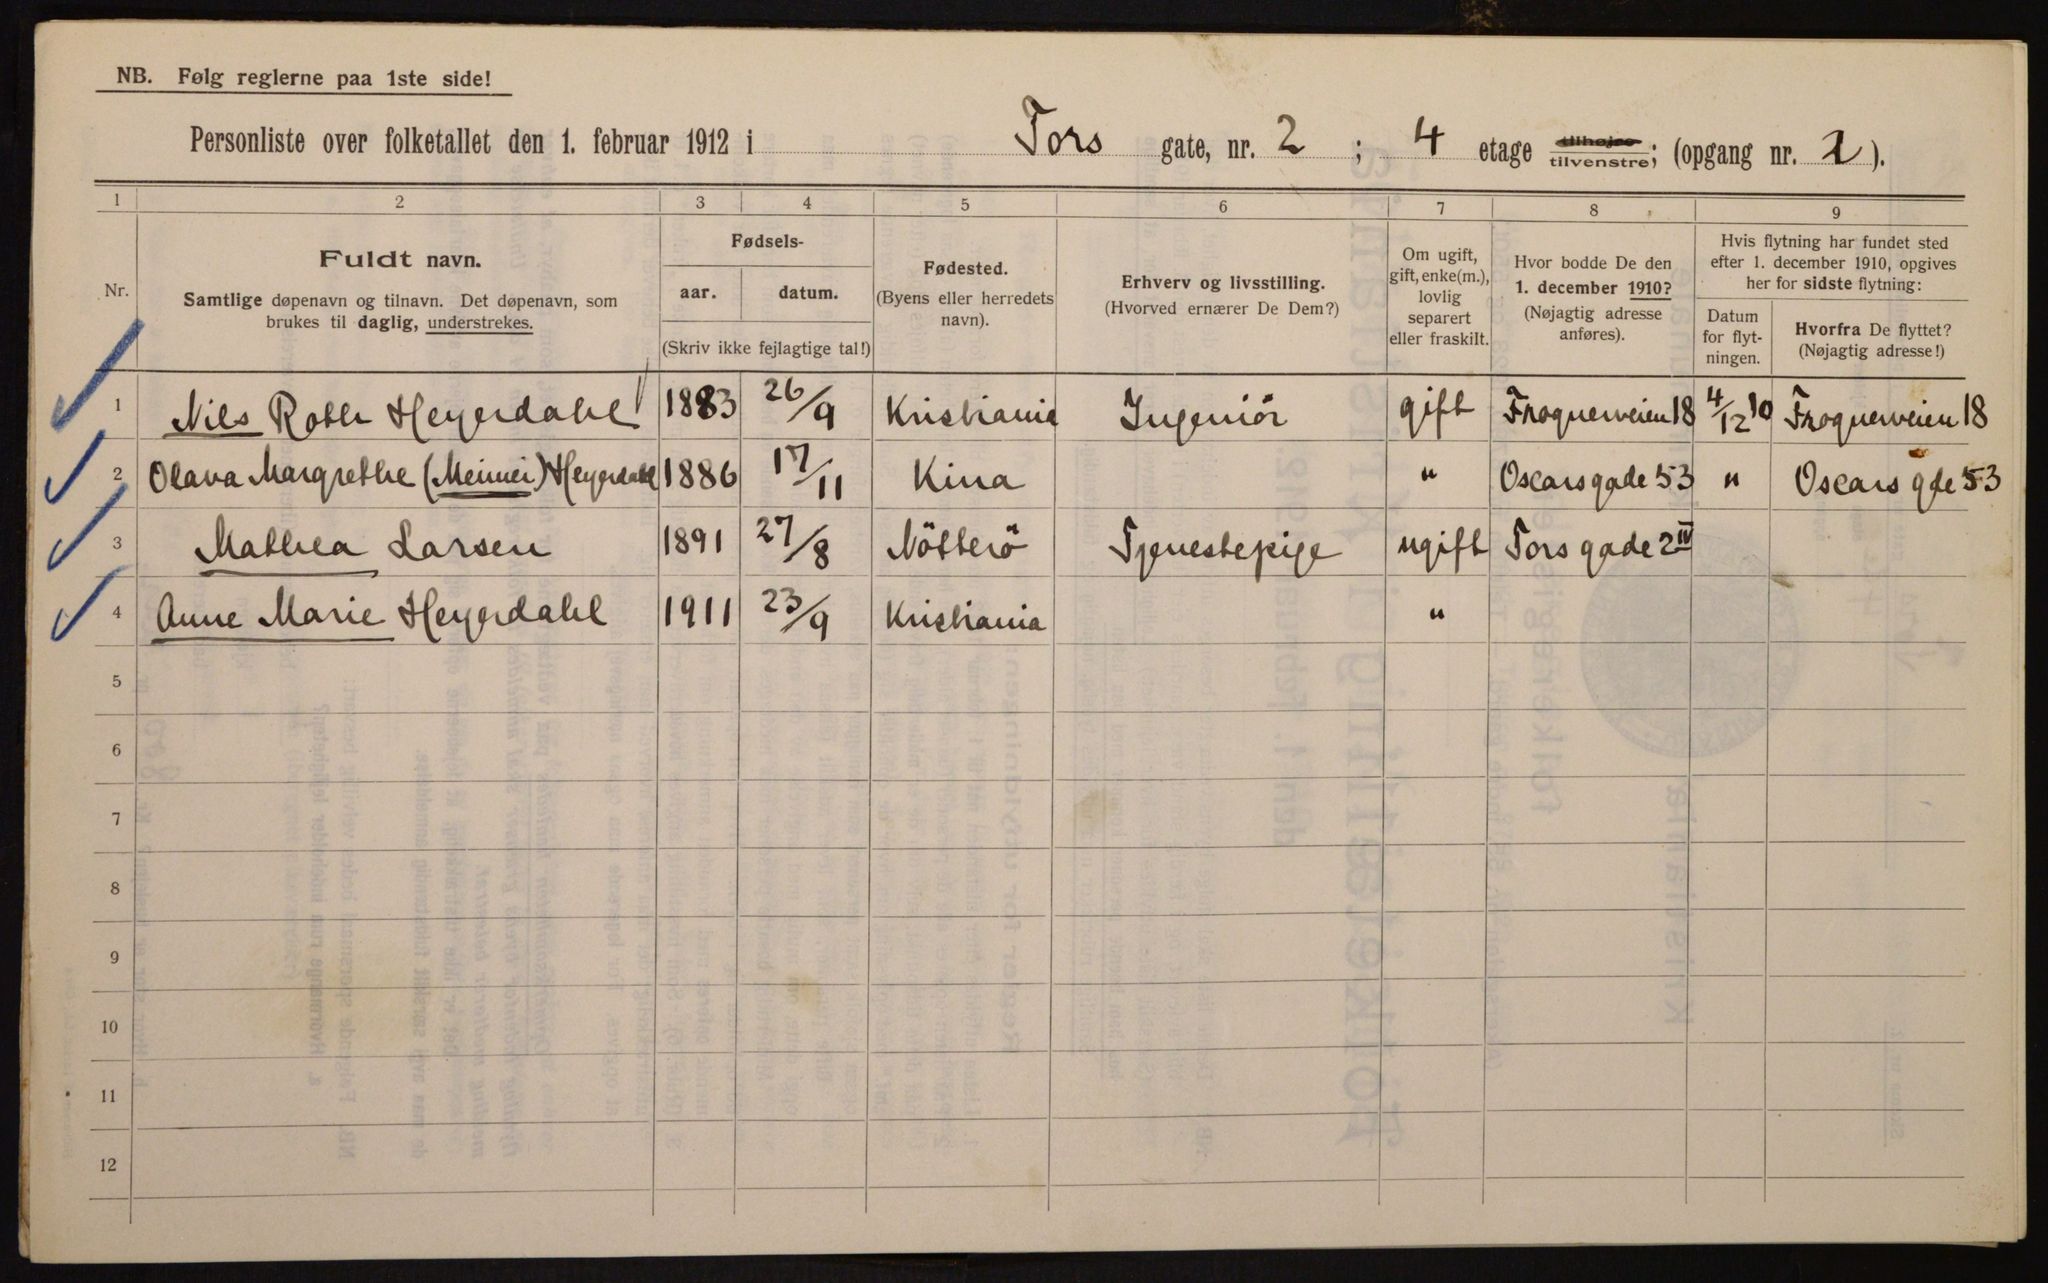 NB. Følg reglerne paa 1ste side!
Personliste over folketallet den 1. februar 1912 i Tors gate, nr. 2 ; 4 etage tilhøjre tilvenstre; (opgang nr. 1).
1 2 3 4 5 6 7 8 9
Nr.
Fuldt navn.
Samtlige døpenavn og tilnavn. Det døpenavn, som
brukes til daglig, understrekes.
Fødsels-
aar. datum.
(Skriv ikke fejlagtige tal!)
Fødested.
(Byens eller herredets
navn).
Erhverv og livsstilling.
(Hvorved ernærer De Dem?)
Om ugift,
gift, enke(m.),
lovlig
separert
eller fraskilt.
Hvor bodde De den
1. december 1910?
(Nøjagtig adresse
anføres).
Hvis flytning har fundet sted
efter 1. december 1910, opgives
her for sidste flytning:
Datum
for flyt-
ningen.
Hvorfra De flyttet?
(Nøjagtig adresse!)
1 Nils Roth Heyerdahl 1883 26/9 Kristiania Ingeniör gift Frognerveien 18 4/12 10 Frognerveien 18
2 Olava Margrethe (Meimei) Heyerdahl 1886 17/11 Kina " Oscarsgade 53 " Oscars gde 53
3 Mathea Larsen 1891 27/8 Nötterö Tjenestepige ugift Tors gade 2 IV
4 Anne Marie Heyerdahl 1911 23/9 Kristiania "
5
6
7
8
9
10
11
12